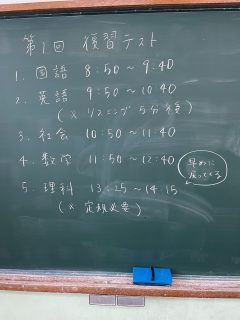 第1回 復習テスト
1. 国語 8:50～9:40
2. 英語 9:50～10:40
(※ リスニング 5分後)
3. 社会 10:50～11:40
4. 数学 11:50～12:40
早めに
戻ってくる
5. 理科 13:25～14:15
(※ 定規必要)